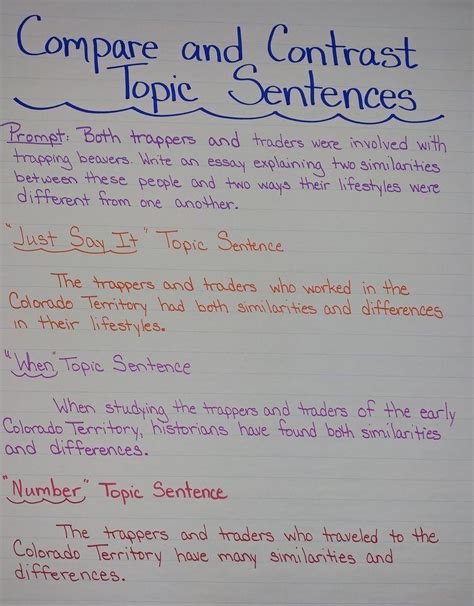 Compare and Contrast
Topic Sentences
Prompt: Both trappers and traders were involved with
trapping beavers. Write an essay explaining two similarities
between these people and two ways their lifestyles were
different from one another.
"Just Say It" Topic Sentence
The trappers and traders who worked in the
Colorado Territory had both similarities and differences
in their lifestyles.
"When" Topic Sentence
When studying the trappers and traders of the early
Colorado Territory, historians have found both similarities
and differences.
"Number" Topic Sentence
The trappers and traders who traveled to the
Colorado Territory have many similarities and
differences.